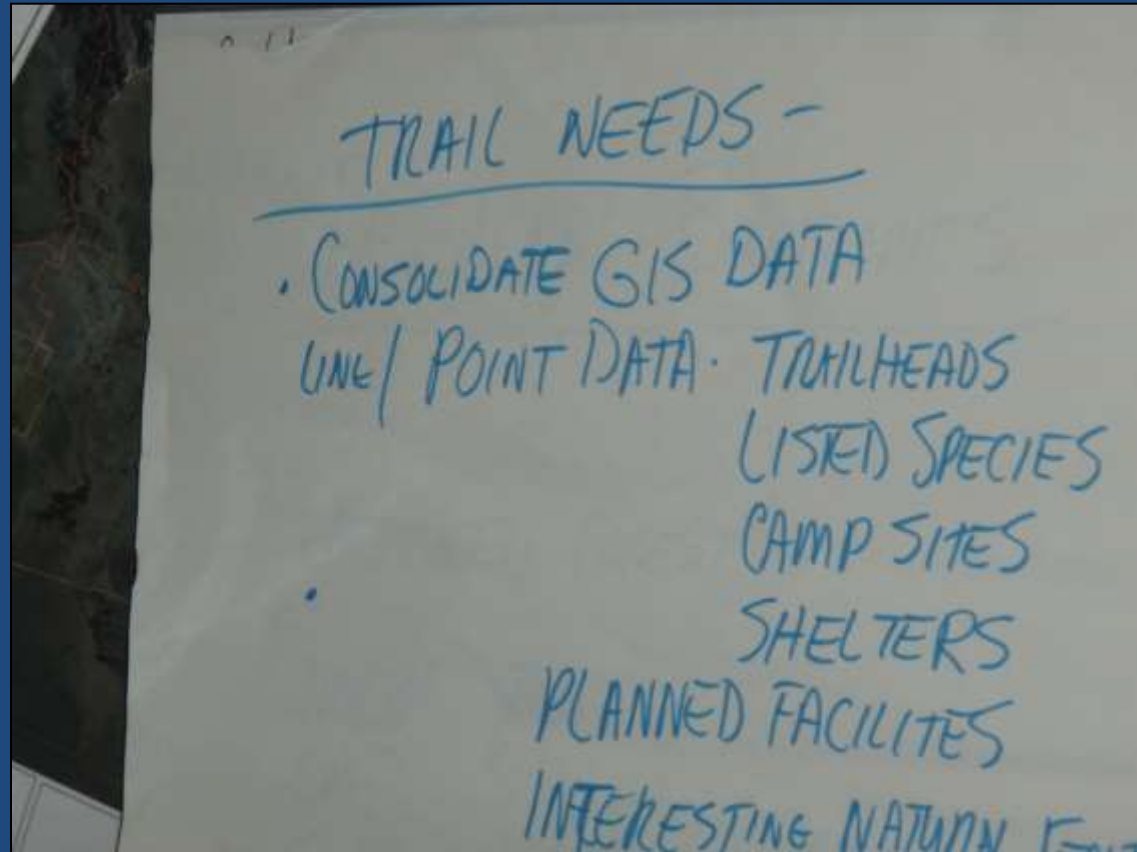 TRAIL NEEDS -
• CONSOLIDATE GIS DATA
LINE/ POINT DATA • TRAILHEADS
LISTED SPECIES
CAMP SITES
•
SHELTERS
PLANNED FACILITES
INTERESTING